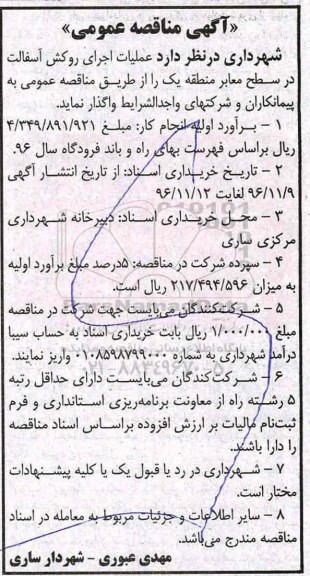 «آگهی مناقصه عمومی»
شهرداری درنظر دارد عملیات اجرای روکش آسفالت
در سطح معابر منطقه یک را از طریق مناقصه عمومی به
پیمانکاران و شرکتهای واجدالشرایط واگذار نماید.
۱ – برآورد اولیه انجام کار: مبلغ ۴/۳۴۹/۸۹۱/۹۲۱
ریال براساس فهرست بهای راه و باند فرودگاه سال ۹۶.
۲ – تاریخ خریداری اسناد: از تاریخ انتشار آگهی
۹۶/۱۱/۹ لغایت ۹۶/۱۱/۱۲
۳ – محل خریداری اسناد: دبیرخانه شهرداری
مرکزی ساری
۴ – سپرده شرکت در مناقصه: ۵درصد مبلغ برآورد اولیه
به میزان ۲۱۷/۴۹۴/۵۹۶ ریال است.
۵ – شرکت‌کنندگان می‌بایست جهت شرکت در مناقصه
مبلغ ۱/۰۰۰/۰۰۰ ریال بابت خریداری اسناد به حساب سیبا
درآمد شهرداری به شماره ۰۱۰۸۵۹۸۷۹۹۰۰۰ واریز نمایند.
۶ – شرکت‌کنندگان می‌بایست دارای حداقل رتبه
۵ رشته راه از معاونت برنامه‌ریزی استانداری و فرم
ثبت‌نام مالیات بر ارزش افزوده براساس اسناد مناقصه
را دارا باشند.
۷ – شهرداری در رد یا قبول یک یا کلیه پیشنهادات
مختار است.
۸ – سایر اطلاعات و جزئیات مربوط به معامله در اسناد
مناقصه مندرج می‌باشد.
مهدی عبوری – شهردار ساری